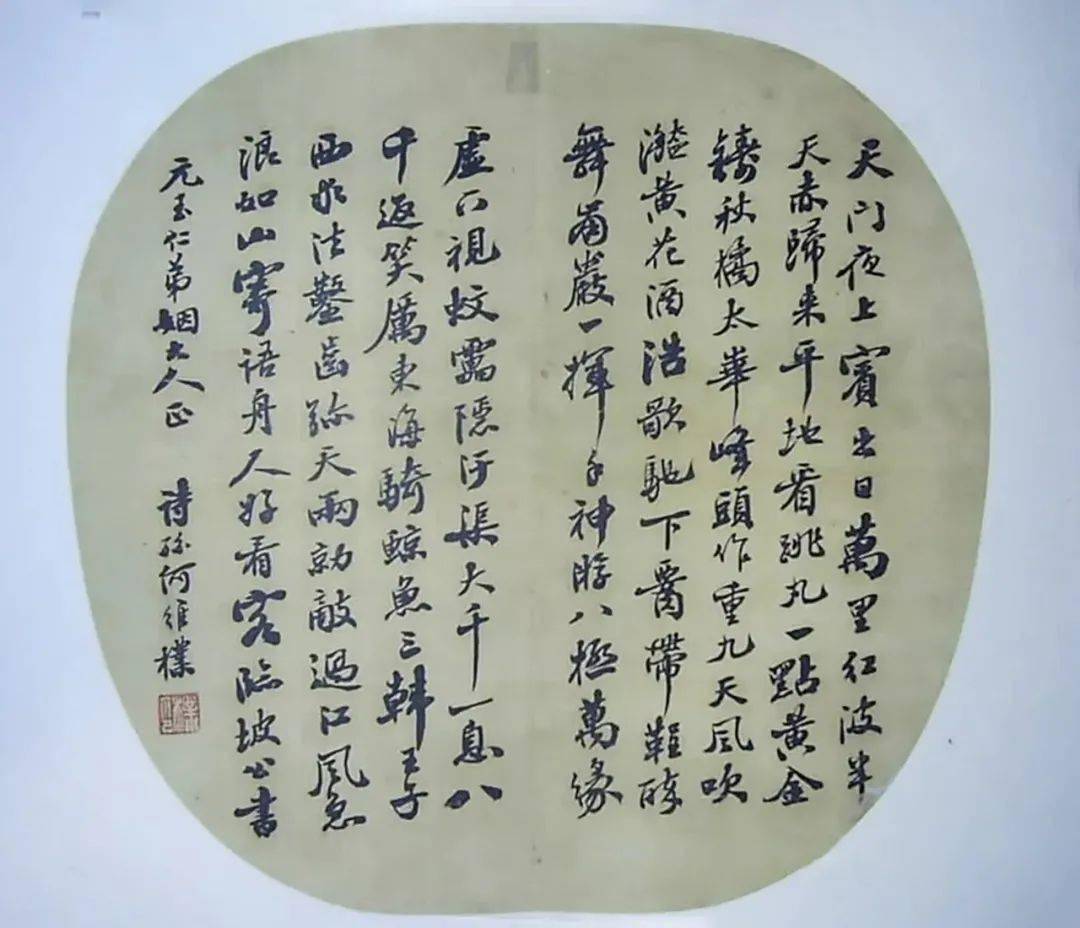 天門夜上賓出日萬里紅波半
天赤歸来平地看跳丸一點黃金
鑄秋橘太華峰頭作重九天風吹
灩黃花酒浩歌馳下腰帶鞓醉
舞崩巖一揮手神游八極萬緣
虛下視蚊靁隱汙渠大千一息八
十返笑厲東海騎鯨魚三韓王子
西求法鑿齒弥天兩勍敵過江風急
浪如山寄語舟人好看客臨坡公書
元玉仁弟姻大人正 詩孫何維樸